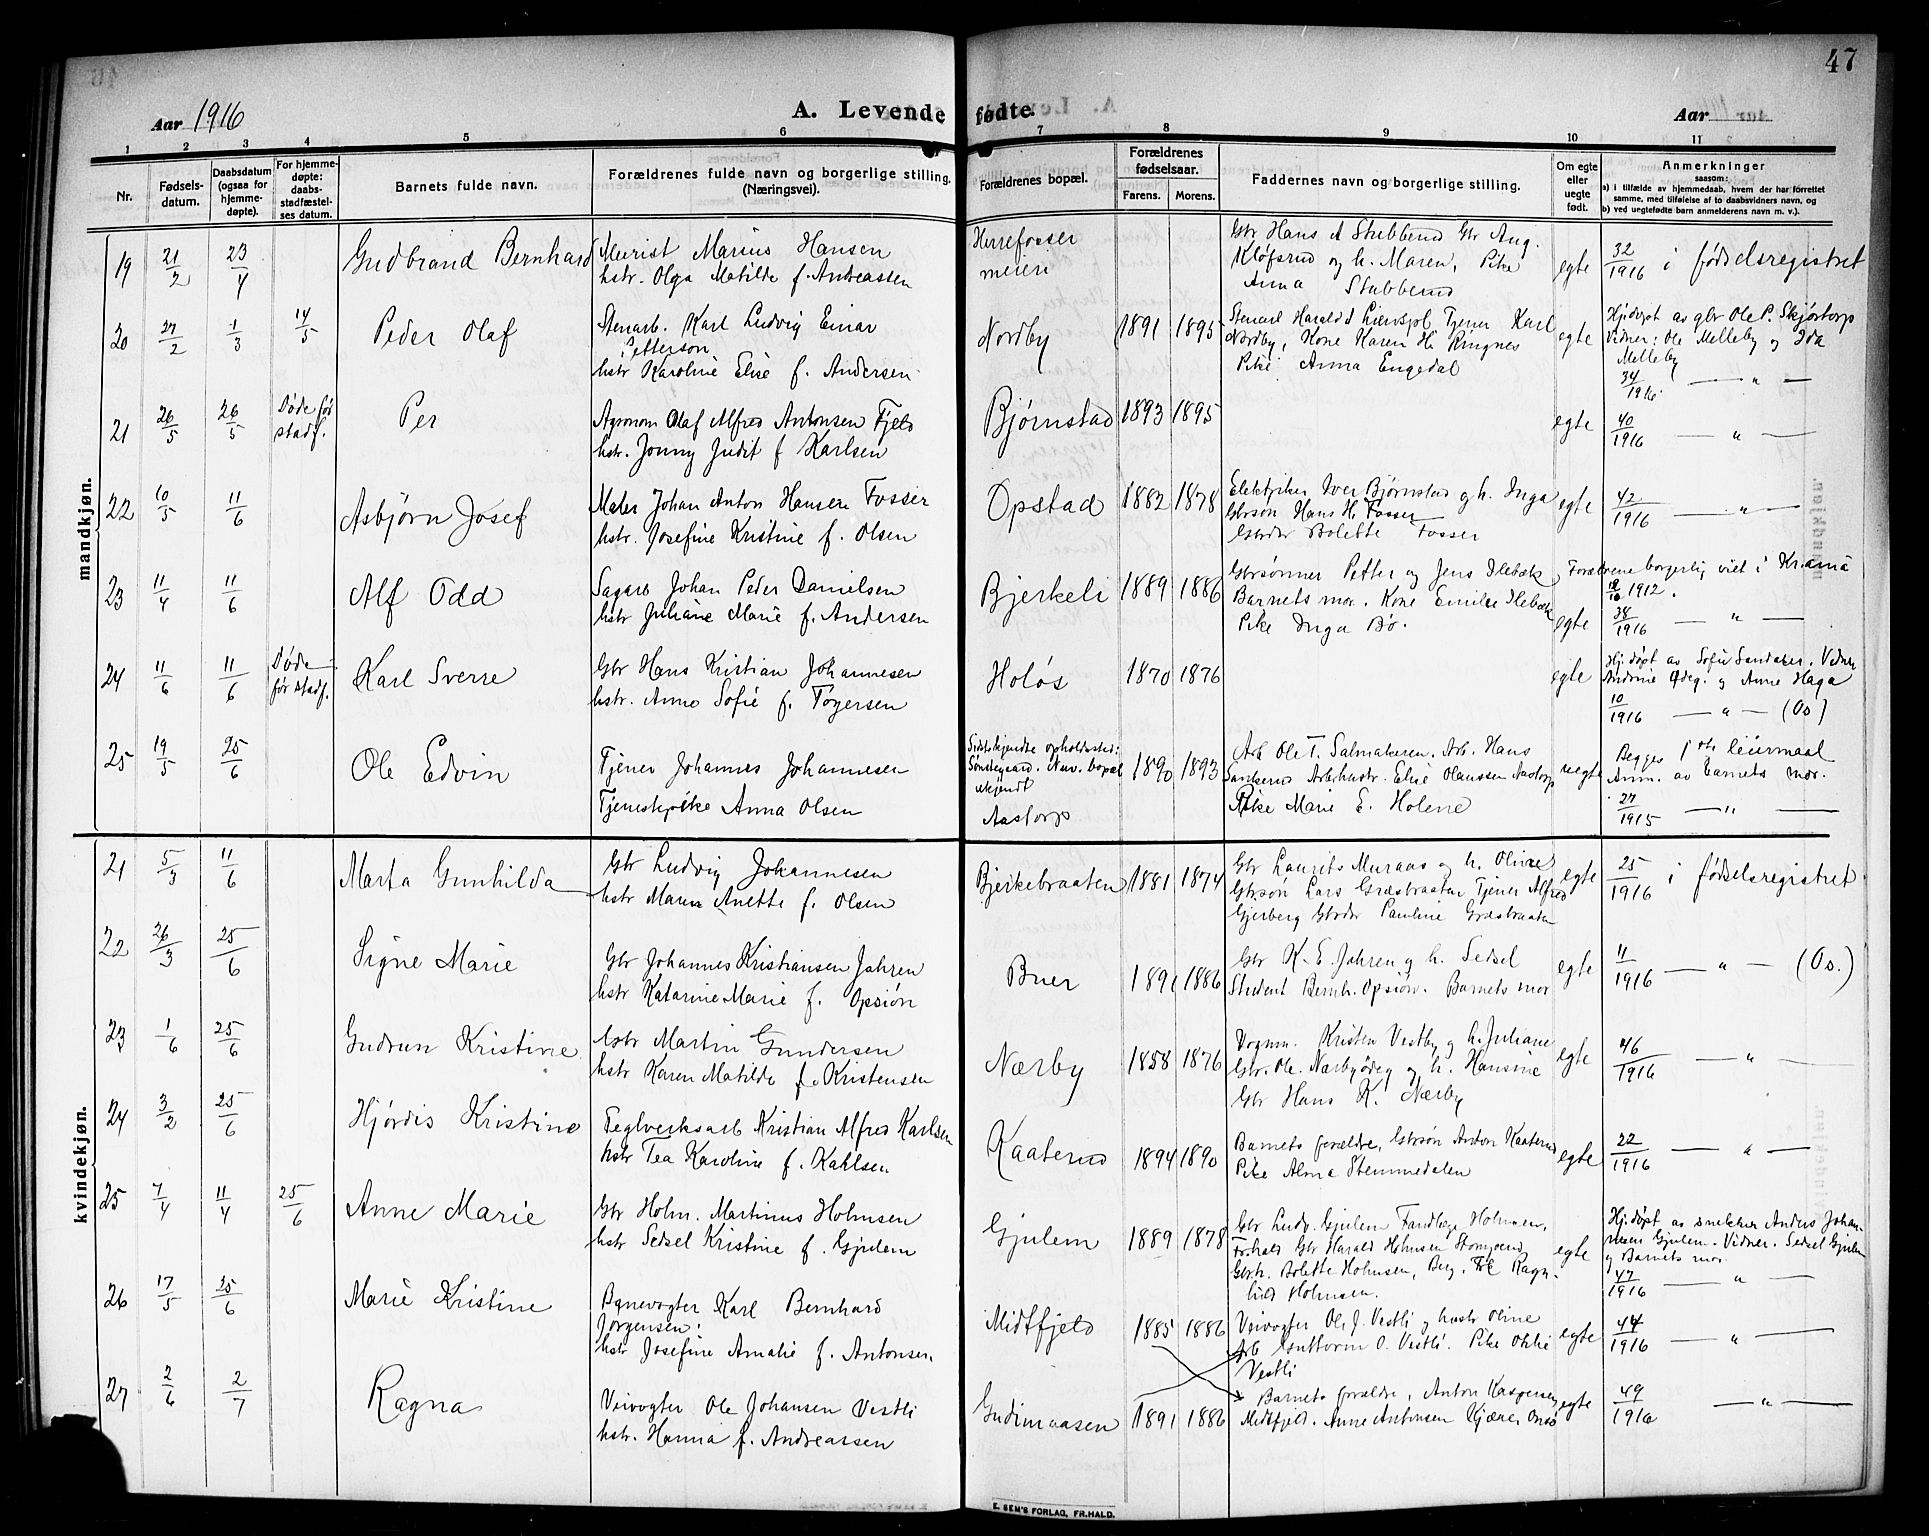 47
Aar 1916
A. Levende fødte.
Aar
1 2 3 4 5 6 7 8 9 10 11
Nr.
Fødsels-
datum.
Daabsdatum
(ogsaa for
hjemme-
døpte).
For hjemme-
døpte:
daabs-
stadfæstel-
ses datum.
Barnets fulde navn.
Forældrenes fulde navn og borgerlige stilling.
(Næringsvei).
Forældrenes bopæl.
Forældrenes
fødselsaar.
Farens. Morens.
Faddernes navn og borgerlige stilling.
Om egte
eller
uegte
født.
Anmerkninger
saasom:
a) i tilfælde av hjemmedaab, hvem der har forrettet
samme, med tilføielse af to daabsvidners navn, og
b) ved uegtefødte barn anmelderens navn m. v.).
mandkjøn.
19 21/2 23/4 Gudbrand Bernhard
Meierist Marius Hansen
hstr. Olga Matilde f. Andreassen
Herrefosser
meieri
Gbr Hans A Stubberud Gbr Aug.
Kløfsrud og h. Maren, Pike
Anna Stubberud
egte
32/1916 i fødselsregistret
20 27/2 1/3 14/5 Peder Olaf
Stenarb. Karl Ludvig Einar
Petterson
hstr Karoline Elise f. Andersen
Nordby 1891 1895
Stenarb Harald Tjener Karl
Nordby, Kone Karen H. Ringnes
Pike Anna Engedal
egte
Hj.døpt av gbr Ole P. Skjørtorp
Vidner: Ole Melleby og Ida
Melleby
34/1916 — " —
21 26/5 26/5 Døde før
stadf.
Per
Agronom Olaf Alfred Antonsen Fjeld
hstr. Jonny Judit f Karlsen
Bjørnstad 1893 1895
egte
40/1916 — " —
22 10/5 11/6 Asbjørn Josef
Maler Johan Anton Hansen Fosser
hstr. Josefine Kristine f. Olsen
Opstad 1882 1878
Elektriker Iver Bjørnstad og h. Inga
Gbrsøn Hans H. Fosser
Gbrdtr Bolette Fosser
egte
42/1916 — " —
23 11/4 11/6 Alf Odd
Sagarb Johan Peder Danielsen
hstr Juliane Marie f. Andersen
Bjerkeli 1889 1886
Gbrsønner Petter og Jens Ilebæk
Barnets mor. Kone Emilie Ilebæk
Pike Inga Bø.
egte
Forældrene borgerlig viet i Kr.ania
1912.
38/1916 — " —
24 11/6 11/6 Døde
før stadf.
Karl Sverre
Gbr Hans Kristian Johannesen
hstr. Anne Sofie f. Togersen
Holøs 1870 1876
egte
Hj.døpt av Sofie Vidner
Andrine Ødeg. og Anne Haga
10/1916 — " — (Os)
25 19/5 25/6 Ole Edvin
Tjener Johannes Johannesen
Tjenestepike Anna Olsen
Sidstkjendte opholdssted:
Sønstegaard. Nuv. bopæl
ukjendt
Aastorp
1890 1893
Arb Ole T. Salmakeren. Arb. Hans
Arb.hustr. Elise Olaussen Aastorp
Pike Marie E. Holene
uegte
Begges 1ste leiermaal
Anm. av barnets mor.
27/1915 — " —
kvindekjøn.
21 5/3 11/6 Marta Gunhilda
Gbr Ludvig Johannesen
hstr Maren Anette f. Olsen
Bjerkebraaten 1881 1874
Gbr Laurits Muraas og h. Oline
Gbrsøn Lars Græsbraaten Tjener Alfred
Gjerberg Gbrdtr Pauline Græsbraaten
egte
25/1916 i fødselsregistret
22 26/3 25/6 Signe Marie
Gbr Johannes Kristiansen Jahren
hstr Katarine Marie f. Opsiøn
Buer 1891 1886
Gbr K. E. Jahren og h. Sedsel
Student Bernh. Opsiøn. Barnets mor
egte
11/1916 — " — (Os.)
23 1/6 25/6 Gudrun Kristine
Gbr Martin Gundersen
hstr Karen Matilde f. Kristensen
Nærby 1858 1876
Vognm. Kristen Vestby og h. Juliane
Gbr. Ole Nærbyødeg og h. Hansine
Gbr Hans K. Nærby
egte
46/1916 — " —
24 3/2 25/6 Hjørdis Kristine
Teglverksarb Kristian Alfred Karlsen
hstr Tea Karoline f. Kahlsen
Kaaterud 1894 1890
Barnets forældre, Gbrsøn Anton Kaaterud
Pike Alma Stemmedalen
egte
22/1916 — " —
25 7/4 11/4 25/6 Anne Marie
Gbr Holm. Martinus Holmsen
hstr Sedsel Kristine f. Gjulem
Gjulem 1889 1878
Gbr Ludv. Gjulem Tandlæge Holmsen,
Fr.hald Gbr Harald Holmsen
Gbrh. Bolette Holmsen, Berg, Frk Ragn-
hild Holmsen.
egte
Hj.døpt av snekker Anders Johan-
nesen Gjulem. Vidner. Sedsel Gjulem
og Barnets mor
47/1916 — " —
26 17/5 25/6 Marie Kristine
Banevogter Karl Bernhard
Jørgensen.
hstr Josefine Amalie f. Antonsen.
Midtfjeld 1885 1886
Veivogter Ole J. Vestli og hustr Oline
Arb Guttorm O. Vestli. Pike
Vestli
egte
44/1916 — " —
27 2/6 2/7 Ragna
Veivogter Ole Johansen Vestli
hstr. Hanna f. Andreassen
Gudimaasen 1891 1886
Barnets forældre, Anton Kaspersen
Midtfjeld. Anne Antonsen Kjære, Onsø
egte
49/1916 — " —
E. SEM'S FORLAG, FR.HALD.